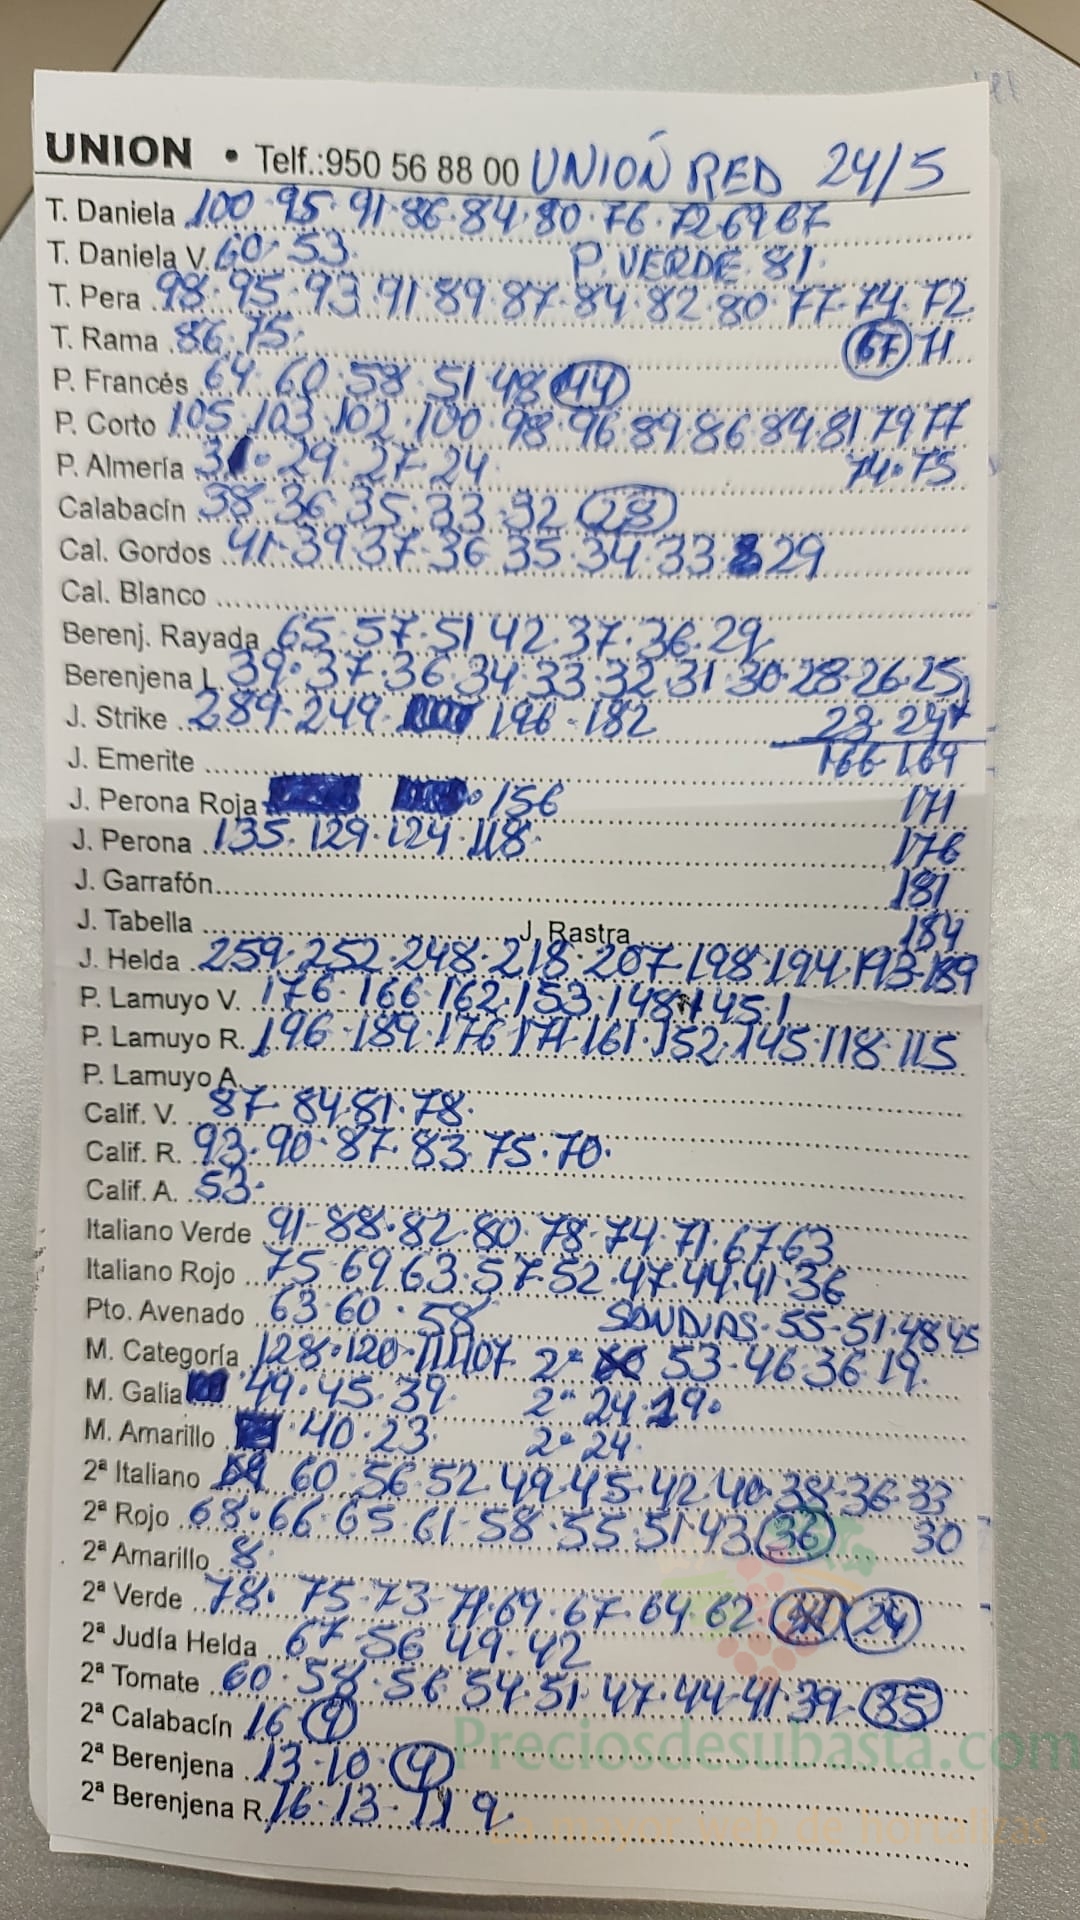 UNION • Telf.:950 56 88 00 UNIÓN RED 24/5
T. Daniela 100·95·91·86·84·80·76·72·69 67
T. Daniela V. 60·53· P. VERDE 81·
T. Pera 98·95·93·91·89·87·84·82·80·77·74·72
T. Rama 86·75· 67 71
P. Francés 64·60·58·51·48 44
P. Corto 105·103·102·100·98·96·89·86·84 81 79 77
P. Almería 31·29·27·24 74·75
Calabacín 38·36·35·33·32 28
Cal. Gordos 41·39 37·36·35·34·33· 29
Cal. Blanco
Berenj. Rayada 65·57·51 42·37·36·29
Berenjena L. 39·37·36·34·33·32·31·30·28·26·25
J. Strike 289·249· 196·182 23 24
J. Emerite 166·169
J. Perona Roja 156 171
J. Perona 135·129·124·118· 176
J. Garrafón 181
J. Tabella J. Rastra 184
J. Helda 259·252·248·218·207·198·194·193·189
P. Lamuyo V. 176·166·162·153·148·145·
P. Lamuyo R. 196·189·176·171·161·152·145·118·115
P. Lamuyo A.
Calif. V. 87·84·81·78·
Calif. R. 93·90·87·83·75·70·
Calif. A. 53·
Italiano Verde 91·88·82·80·78·74·71·67·63
Italiano Rojo 75·69·63·57·52·47·44·41·36
Pto. Avenado 63·60·58 SANDIAS·55·51·48 45
M. Categoría 128·120·111·107 2ª 53·46·36·19·
M. Galia 49·45·39· 2ª 24 19·
M. Amarillo ·40·23 2ª 24
2ª Italiano 60·56·52·49·45·42·40·38·36·33
2ª Rojo 68·66·65·61·58·55·51·43 36 30
2ª Amarillo 8·
2ª Verde 78·75·73·71·69·67·64·62 24
2ª Judía Helda 67·56·49·42
2ª Tomate 60·58·56·54·51·47·44·41·39 35
2ª Calabacín 16
2ª Berenjena 13·10· 4
2ª Berenjena R. 16·13·11 9
Preciosdesubasta.com
La mayor web de hortalizas